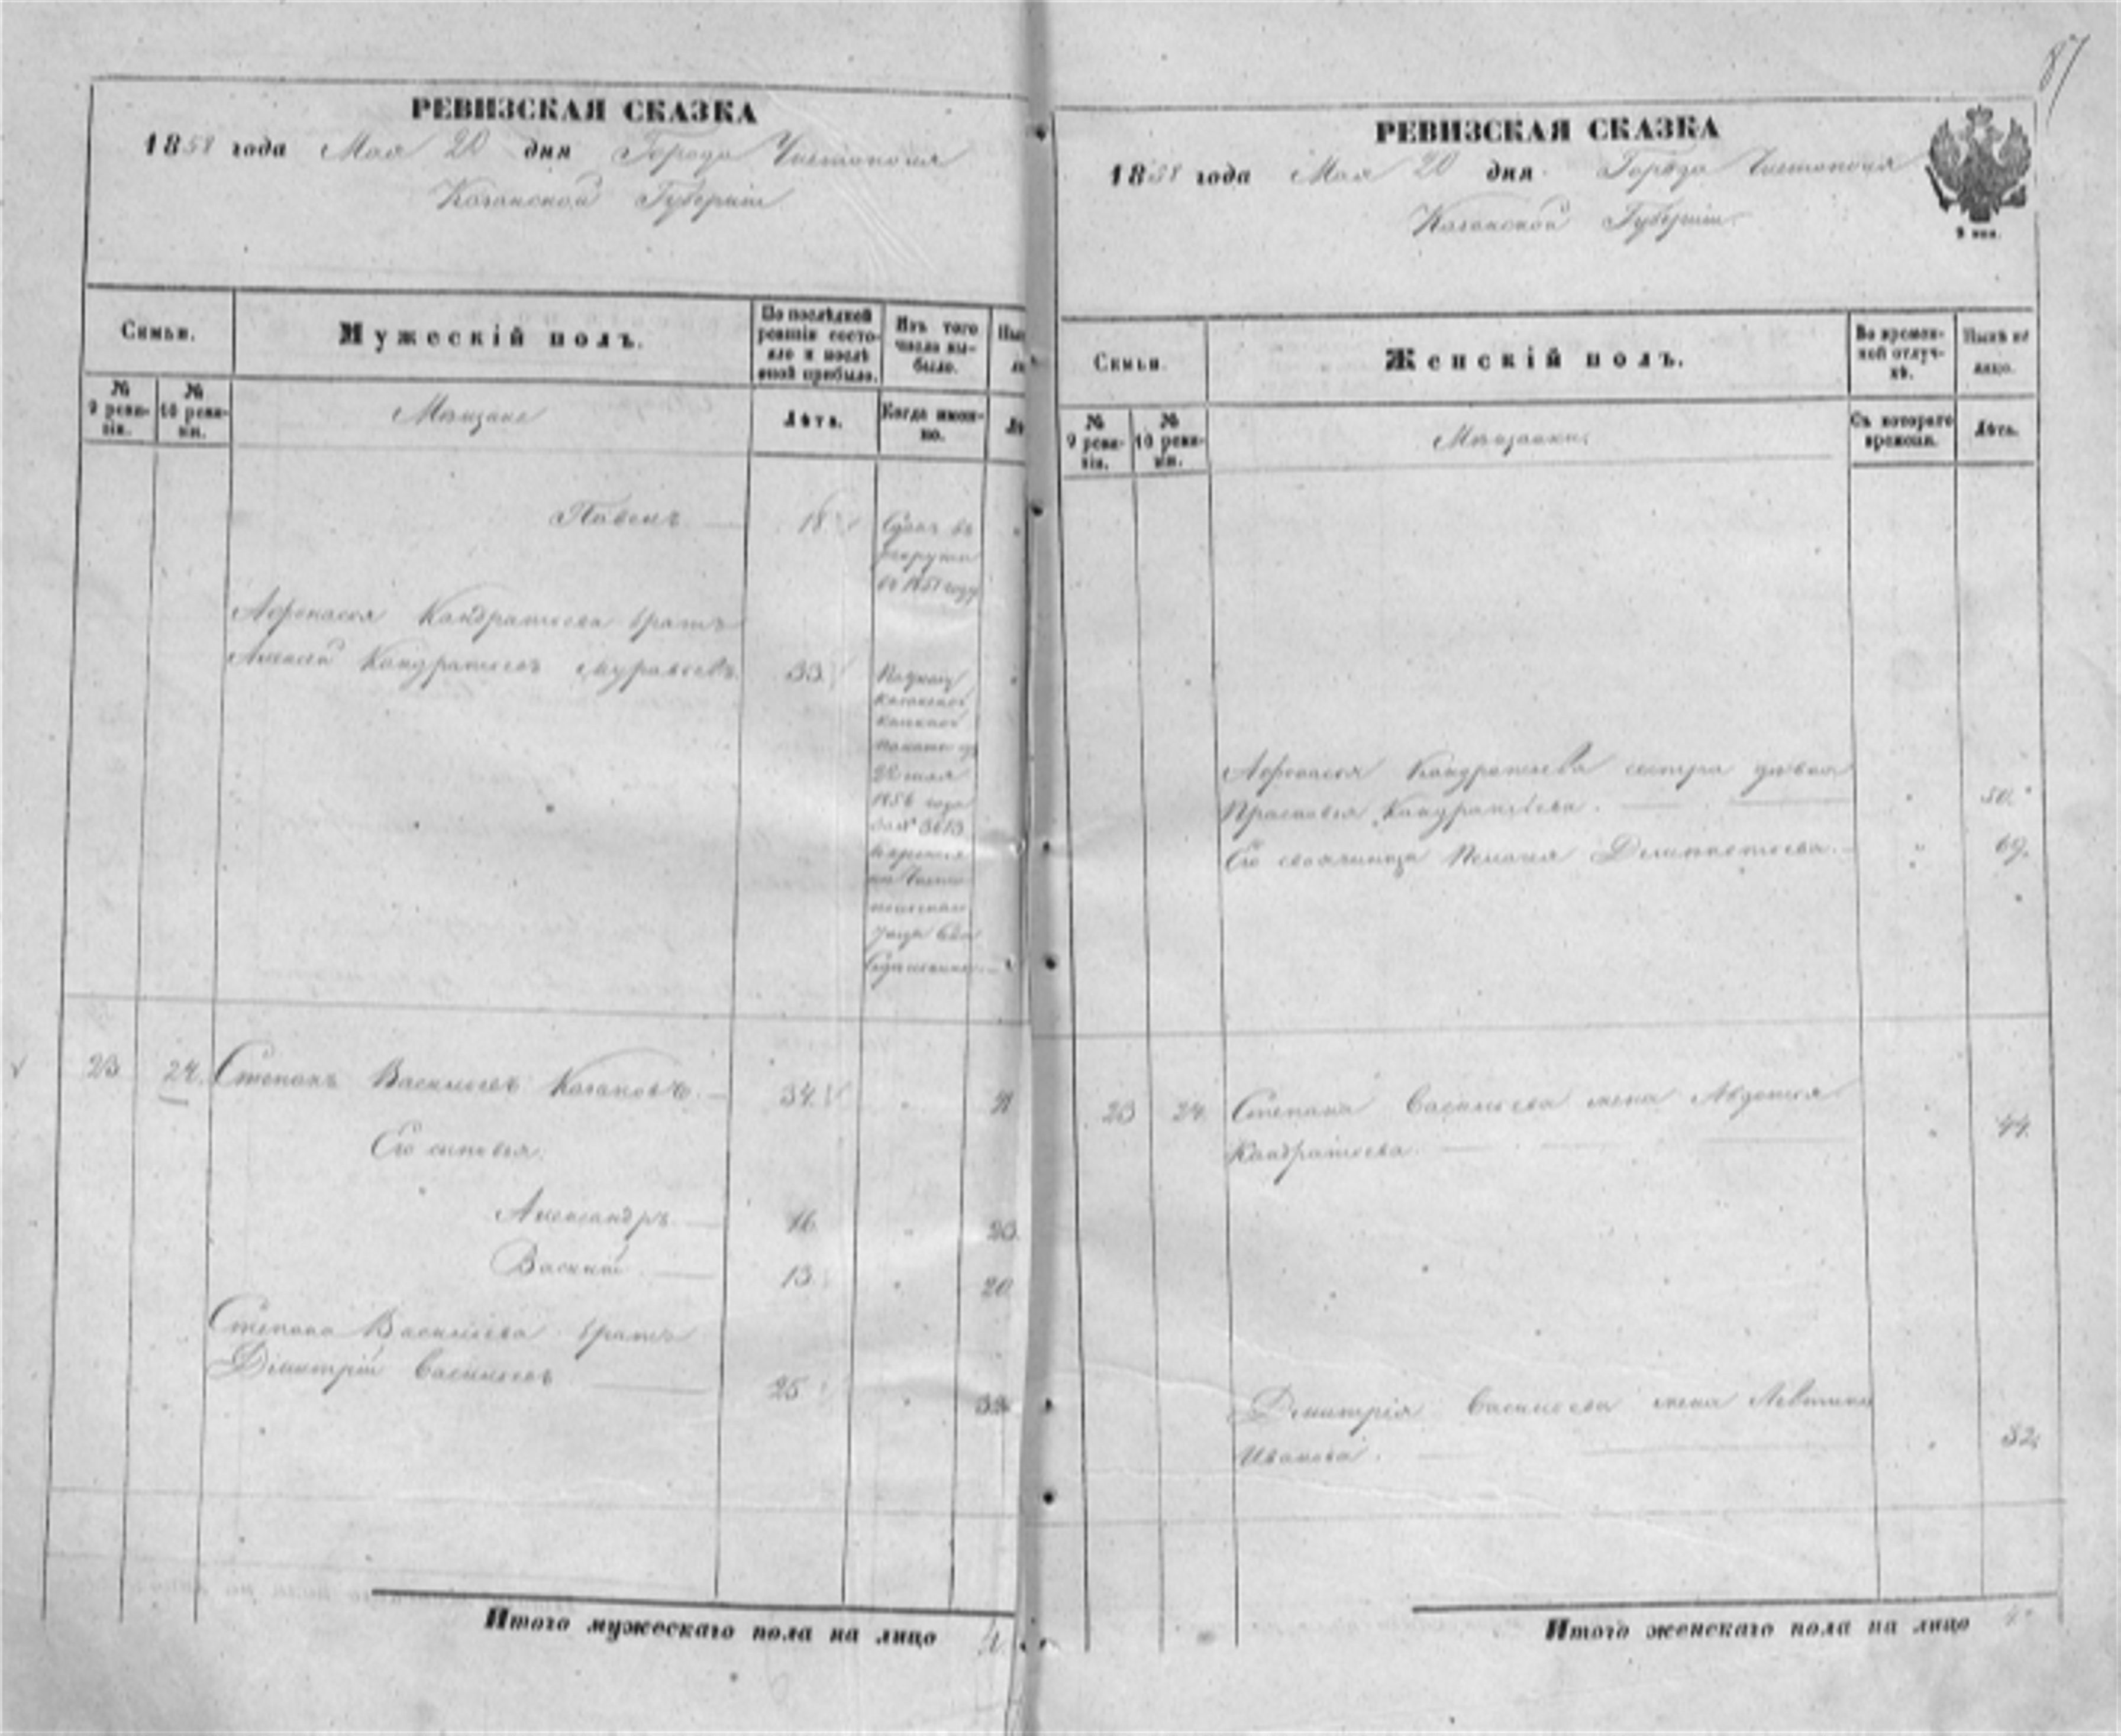 87
РЕВИЗСКАЯ СКАЗКА
1858 года Мая 20 дня Города Чистополя
Казанской Губерніи
Семьи.
Мужескій полъ.
По послѣдней ревизіи состояло и послѣ оной прибыло.
Изъ того числа выбыло.
№ 9 ревизіи.
№ 10 ревизіи.
Мѣщане
Лѣта.
Когда именно.
Павелъ 18 Сданъ въ
рекруты
въ 1851 году
Афонасья Кандратьева братъ
Алексей Кандратьевъ Муравьевъ 33 По указу
Казанской
Казенной
Палаты
1856 года
за № 3613
23 24 Степанъ Васильевъ Казаковъ 34
Его сыновья
Александръ 16
Василій 13 20
Степана Васильева братъ
Дімитрій Васильевъ 25
Итого мужескаго пола на лицо
РЕВИЗСКАЯ СКАЗКА
1858 года Мая 20 дня Города Чистополя
Казанской Губерніи
Семьи.
Женскій полъ.
Во временной отлучкѣ.
Нынѣ на лицо.
№ 9 ревизіи.
№ 10 ревизіи.
Мѣщанки
Съ котораго времени.
Лѣта.
Афонасья Кандратьева сестра девка
Прасковья Кандратьева 50
Его свояченица Пелагея 69
23 24 Степана Васильева жена Авдотья
Кандратьева 44
Дмитрія Васильева жена
Иванова 32
Итого женскаго пола на лицо